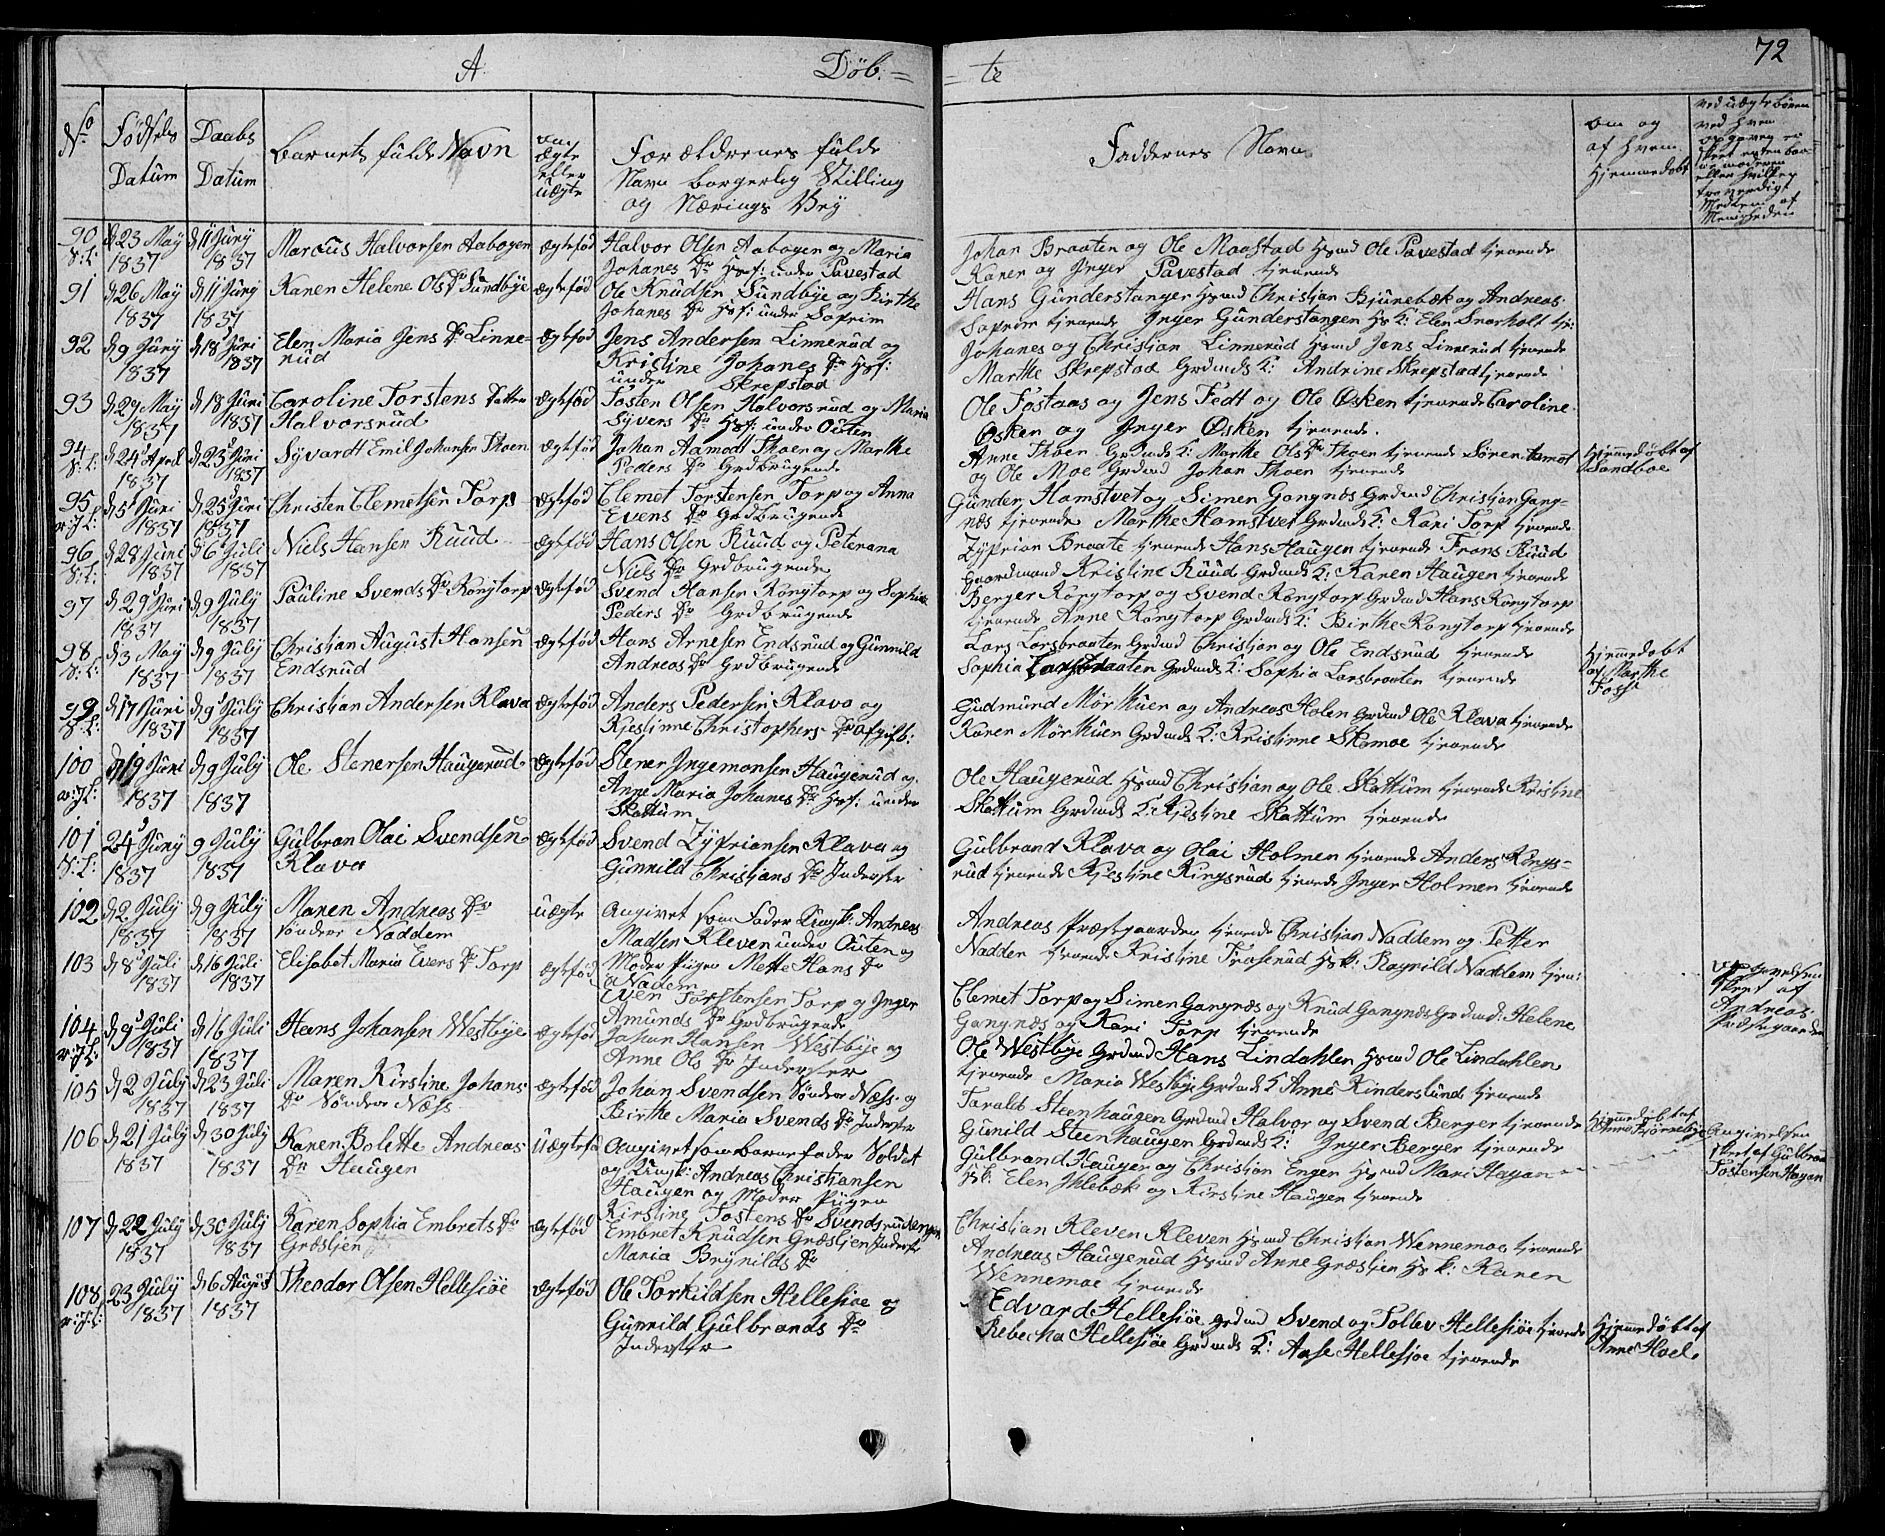 A Døb:= = te 72
No
Fødsels Datum
Daabs Datum
barnets fulde Navn
om ægte eller uægte
Forældrenes fulde
Navn borgerlig Stilling
og Nærings Vej
Faddernes Navn
om og
af hvem
Hjemmedøbt
ved uægte børen
ved hvem
90 d 23 May 1837 d 11 Juny 1837 Marcus Halvorsen Aabogen ægtefød Halvor Olsen Aabogen og Maria
Johanes Dr Hsf: under Pavestad
Johan Braaten og Ole Maastad Hsmd Ole Pavestad tjenende
Karen og Inger Pavestad tjenende
91 d 26 May 1837 d 11 Juny 1837 Karen Helene Ols Dr Sundbye ægtefød Ole Knudsen Sundbye og Birthe
Johanes Dr Hsf: under Soprim
Hans Gunderstangen Hsmd Christian Bjunebæk og Andreas
Soprim tjenende Inger Gunderstangen Hs K: Elen Snarholt tj:
92 d 9 Juny 1837 d 18 Juni 1837 Elen Maria Jens Dr Linne-
rud ægtefød Jens Andersen Linnerud og
Kristine Johanes Dr Hsf:
under Skrepstad
Johanes og Christian Linnerud Hsmd Jens Linnerud tjenende
Marthe Skrepstad Grdmds K: Andrine Skrepstad tjenende
93 d 29 May 1837 d 18 Juni 1837 Caroline Torstens Datter
Halvorsrud ægtefød Tosten Olsen Halvorsrud og Maria
Syvers Dr Hsf: under Outen
Ole Fostaas og Jens Fedt og Ole Øsken tjenende Caroline
Øsken og Inger Øsken tjenende.
94 S:L: d 24 April 1837 d 25 Juni 1837 Syvardt Emil Johansen Thoen ægtefød Johan Aamodt Thoen og Marthe
Peders Dr Grdbrugende
Anne Thoen Grdmds K: Marthe Ols Dr Thoen tjenende Søren Aamot
og Ole Moe Grdmd Johan Thoen tjenende
Hjemmedøbt af
Sandboe
95 d 5 Juni 1837 d 25 Juni 1837 Christen Clemetsen Torp ægtefød Clemet Torstensen Torp og Anna
Evens Dr Grdbrugende
Gunder Hamstvet og Simen Gangnæs Grdmd Christian Gang-
næs tjenende Marthe Hamstvet Grdmds K: Kari Torp tjenende
96 S:L: d 28 Juni 1837 d 6 Juli 1837 Niels Hansen Ruud ægtefød Hans Olsen Ruud og Peterana
Niels Dr Grdbrugende
Zyprian Braate tjenende Hans Haugen tjenende Frans Ruud
Gaardmand Kristine Ruud Grdmds K: Karen Haugen tjenende
97 d 29 Juni 1837 d 9 July 1837 Pauline Svends Dr Kongtorp ægtefød Svend Hansen Kongtorp og Sophia
Peders Dr Grdbrugende
Berger Kongtorp og Svend Kongtorp Grdmd Hans Kongtorp
tjenende Anne Kongtorp Grdmds K: Birthe Kongtorp tjenende
98 S:L: d 3 May 1837 d 9 July 1837 Christian August Hansen
Endsrud ægtefød Hans Arnesen Endsrud og Gunnild
Andreas Dr Grdbrugende
Lars Larsbraaten Grdmd Christian og Ole Endsrud tjenende
Sophia Larsbraaten Grdmds K: Sophia Larsbraaten tjenende
Hjemmedøbt
af Marthe
Foss
99 S:L: d 17 Juni 1837 d 9 July 1837 Christian Andersen Klava ægtefød Anders Pedersen Klava og
Kjestinne Christophers Dr afgift:
Gudmund Mørkhuen og Andreas Holen Grdmd Ole Klava tjenende
Karen Mørkhuen Grdmds K: Kristinne Skamoe tjenende
100 d 19 Juni 1837 d 9 July 1837 Ole Stenersen Haugerud ægtefød Stener Ingemansen Haugerud og
Anne Maria Johanes Dr Hsf: under
Skattum
Ole Haugerud Hsmd Christian og Ole Skattum tjenende Kristine
Skattum Grdmds K: Kjestine Skattum tjenende
101 S:L: 24 Juny 1837 9 July 1837 Gulbran Olai Svendsen
Klava ægtefød Svend Zypriansen Klava og
Gunnild Christians Dr Inderster
Gulbrand Klava og Olai Holmen tjenende Anders Rings-
rud tjenende Kjestine Ringsrud tjenende Inger Holmen tjenende
102 d 2 July 1837 d 9 July 1837 Maren Andreas Dr
søndere Naddem uægte Angivet som Fader Ungk: Andreas
Madsen Kleven under Outen og
Moder Pigen Mette Hans Dr
Nadem
Andreas Præstegaarden tjenende Christian Naddem og Petter
Nadden tjenende Kristine Fraserud Hsk: Ragnild Naddem tjen:
Opgivelsen
skeet af
Andreas
Præstegaarden
103 d 8 Juli 1837 d 16 Juli 1837 Elisabet Maria Evens Dr Torp ægtefød Even Torstensen Torp og Inger
Amunds Dr Grdbrugende
Clemet Torp og Simen Gangnæs og Knud Gangnæs Grdmd: Helene
Gangnæs og Kari Torp tjenende
104 d 9 Juli 1837 d 16 Juli 1837 Hans Johansen Westbye ægtefød Johan Hansen Westbye og
Anne Ols Dr Inderster
Ole Westbye Grdmd Hans Lindahlen Hsmd Ole Lindahlen
tjenende Maria Westbye Grdmds K Anne Kinderslund tjenende
105 d 2 July 1837 d 23 Juli 1837 Maren Kirstine Johans
Dr Søndere Næss ægtefød Johan Svendsen Søndere Næss og
Birthe Maria Svends Dr Inderster
Taralds Steenhaugen Grdmd Halvor og Svend Berger tjenende
Gunild Steenhaugen Grdmds K: Inger Berger tjenende
Hjemmedøbt af
106 d 21 July 1837 d 30 July 1837 Karen Bolette Andreas
Dr Haugen uægtefød Angivet som barnefader Soldat
og Ungk: Andreas Christiansen
Haugen og Moder Pigen
Kirstine Tostens Dr Svendsrudengen
Gulbrand Haugen og Christian Engen Hsmd Mari Hagan
Hsk: Elen Ihlebæk og Kirstine Haugen tjenende
Angivelsen
skeet af Gulbran
Tostensen Hagan
107 d 22 July 1837 d 30 July 1837 Karen Sophia Embrets Dr
Græsljen ægtefød Embret Knudsen Græsljen Inderster
Maria Brynilds Dr
Christian Kleven Kleven Hsmd Christian Wennemoe tjenende
Andreas Haugerud Hsmd Anne Græsljen Hsk: Karen
Wennemoe tjenende
108 23 July 1837 d 6 August 1837 Theodor Olsen Hellesiøe ægtefød Ole Torkildsen Hellesiøe og
Gunnild Gulbrands Dr
Inderster
Edvard Hellesiøe Grdmd Svend og Tollev Hellesiøe tjenende
Rebecka Hellesiøe Grdmds K: Aase Hellesiøe tjenende
Hjemmedøbt af
Anne Hoel.